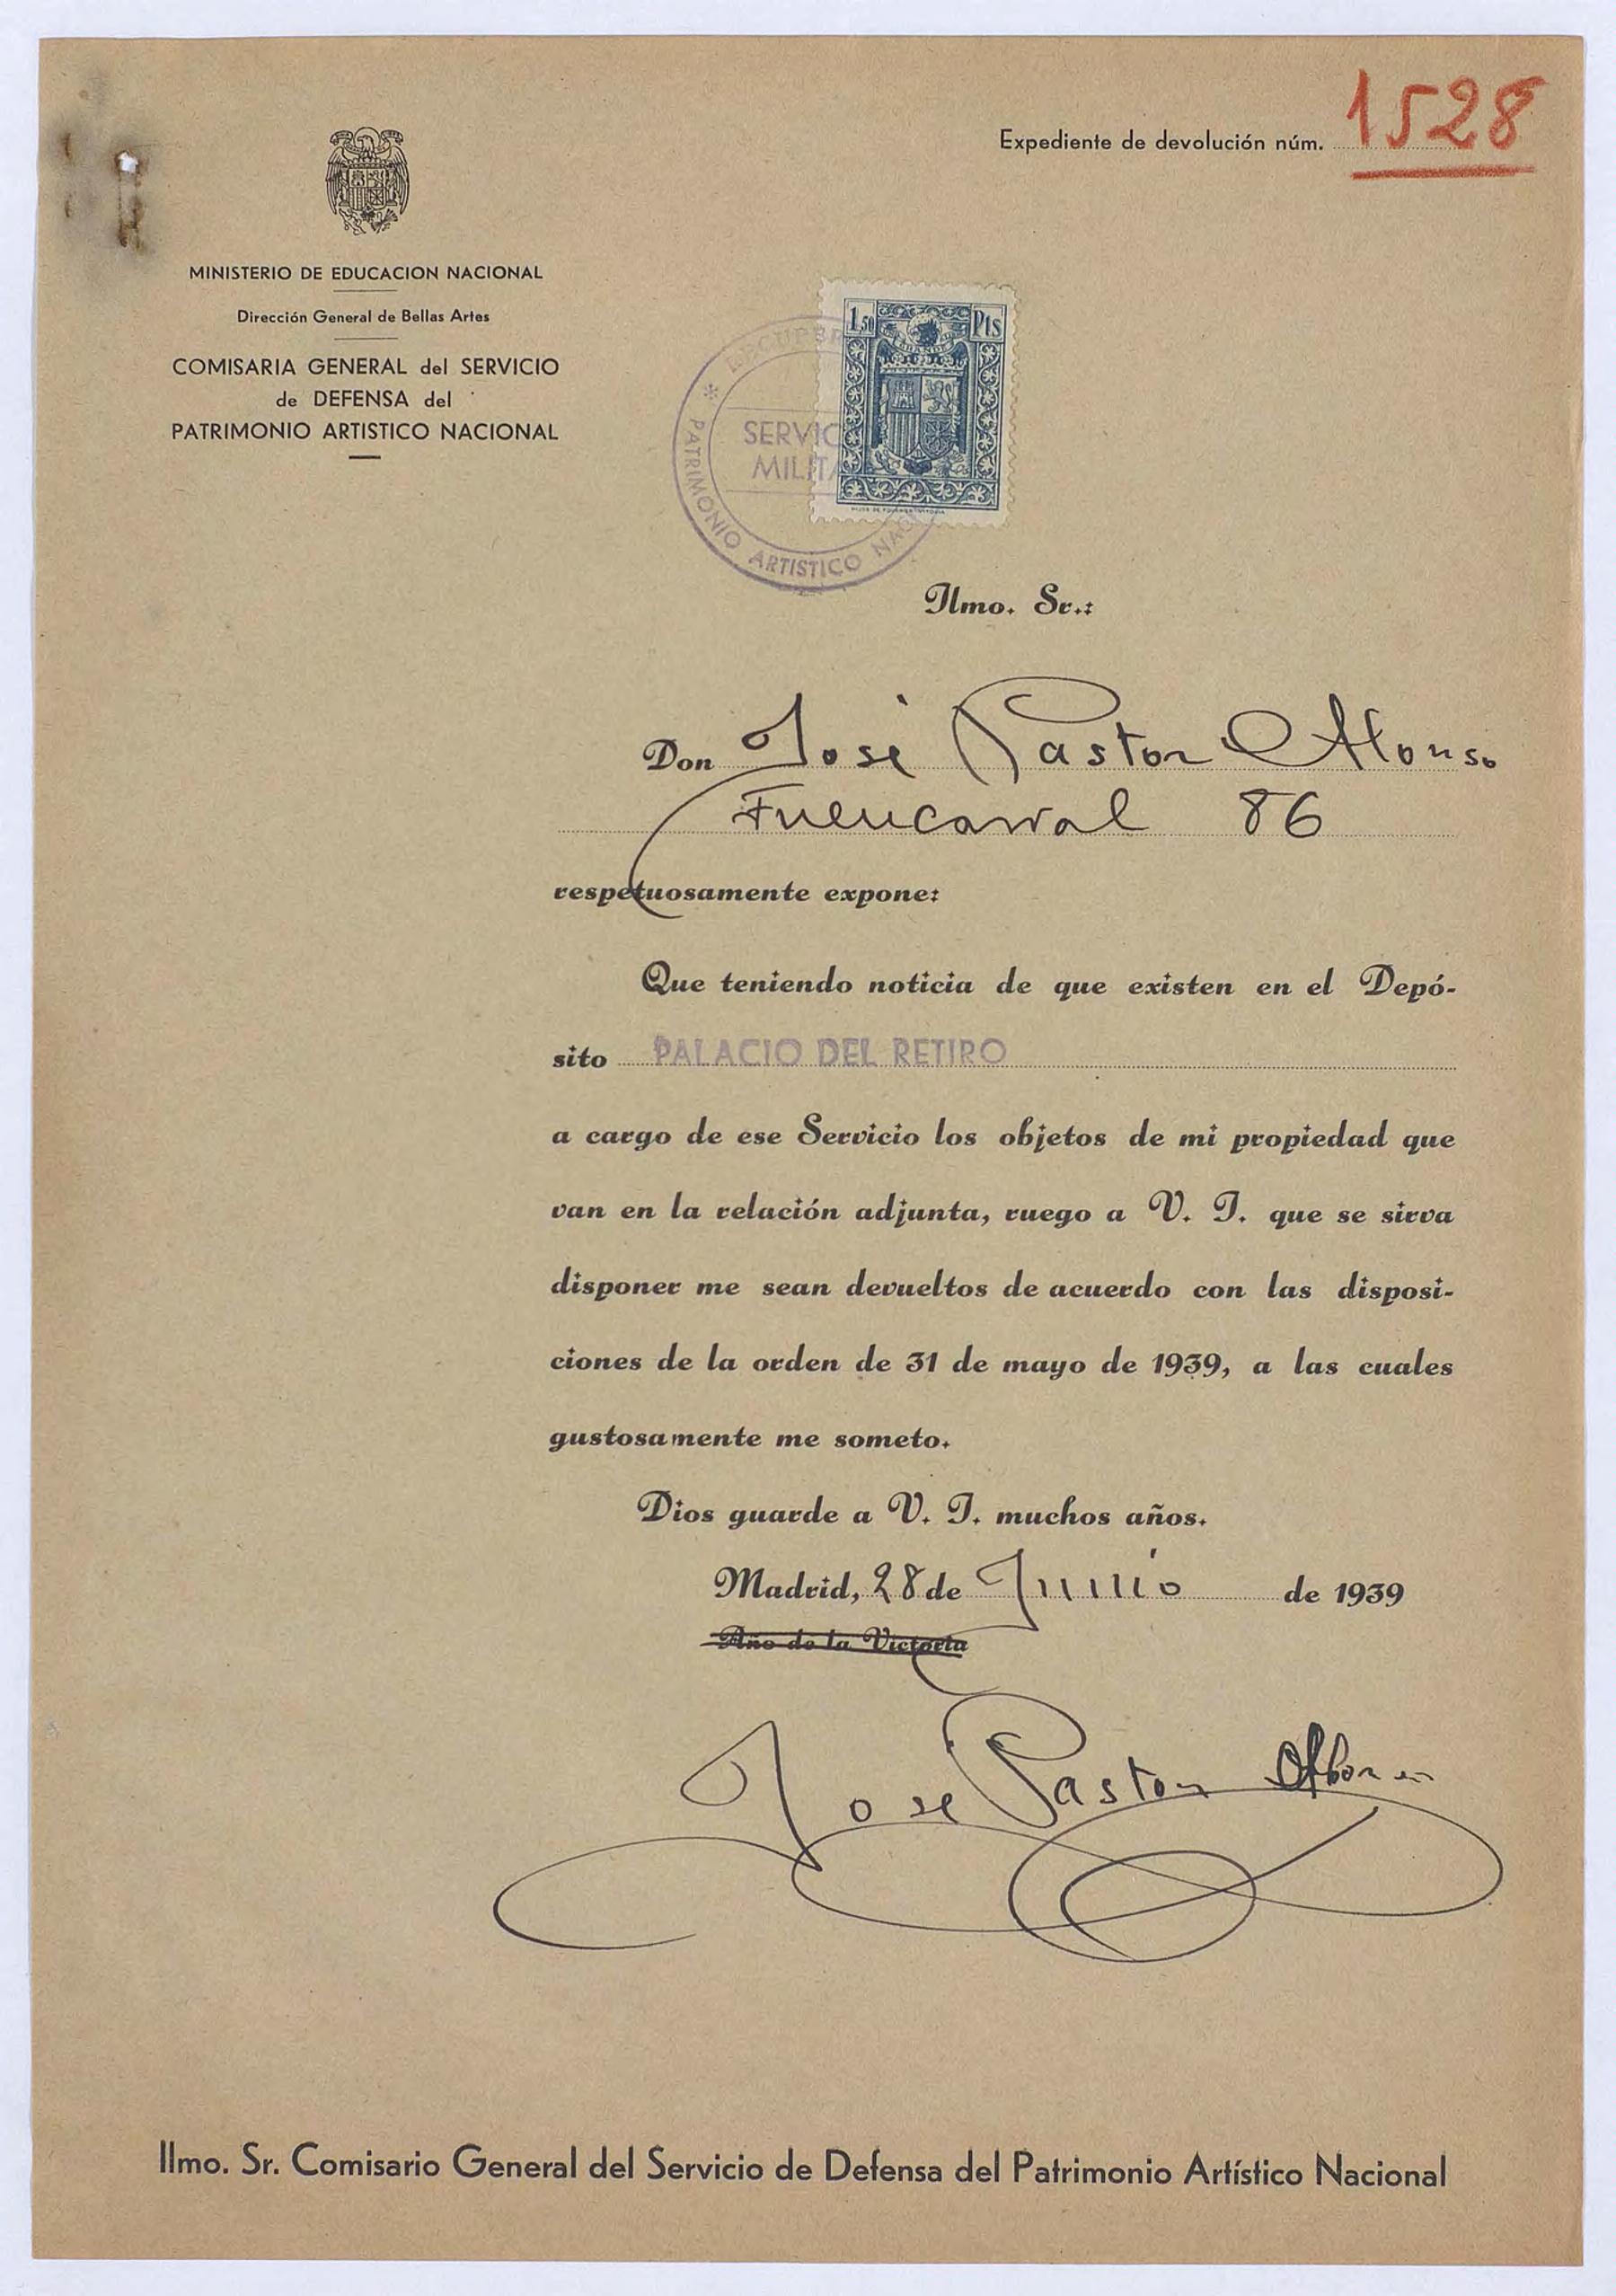 Expediente de devolución núm. 1528
MINISTERIO DE EDUCACION NACIONAL
Dirección General de Bellas Artes
COMISARIA GENERAL del SERVICIO
de DEFENSA del
PATRIMONIO ARTISTICO NACIONAL
1,50 Pts
SERVIC
MILITA
PATRIMONIO ARTISTICO NAC
Ilmo. Sr.:
Don José Pastor Alonso
Fuencarral 86
respetuosamente expone:
Que teniendo noticia de que existen en el Depó-
sito PALACIO DEL RETIRO
a cargo de ese Servicio los objetos de mi propiedad que
van en la relación adjunta, ruego a V. I. que se sirva
disponer me sean devueltos de acuerdo con las disposi-
ciones de la orden de 31 de mayo de 1939, a las cuales
gustosamente me someto.
Dios guarde a V. I. muchos años.
Madrid, 28 de Junio de 1939
Año de la Victoria
Jose Pastor Alonso
Ilmo. Sr. Comisario General del Servicio de Defensa del Patrimonio Artístico Nacional